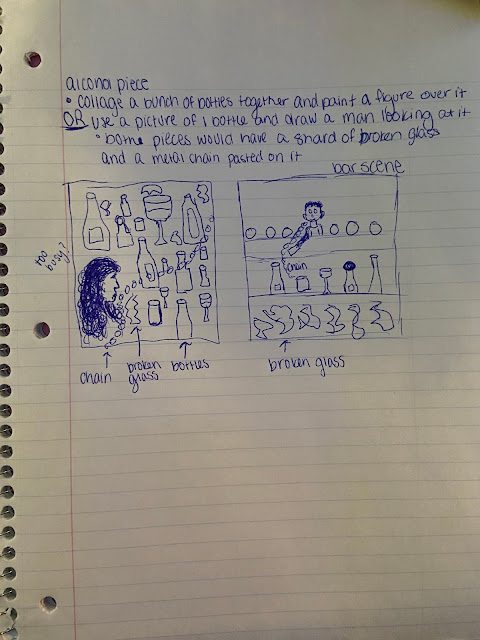 alcohol piece
• collage a bunch of bottles together and paint a figure over it
OR use a picture of 1 bottle and draw a man looking at it
• both pieces would have a shard of broken glass
and a metal chain pasted on it
bar scene
too
busy?
chain
chain
broken
glass
bottles
broken glass